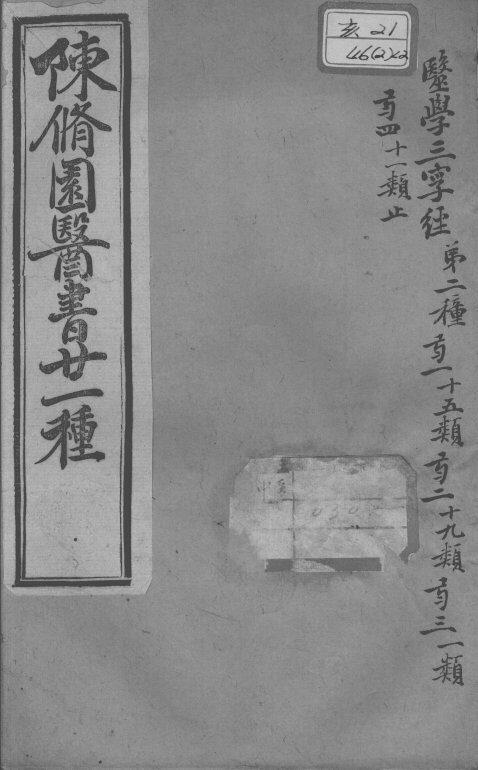 亥 21
46(2)×2
醫學三字經 第二種 百一十五類 百二十九類 百三一類
百四十一類止
陳脩園醫書廿一種